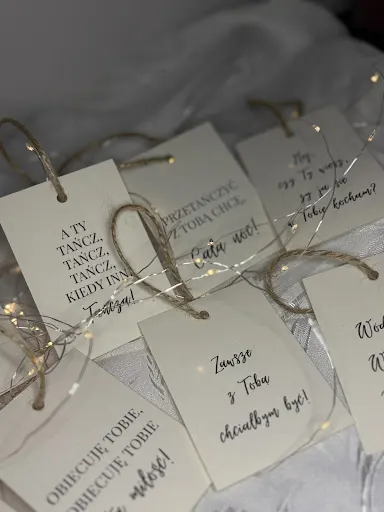 A TY
TAŃCZ,
TAŃCZ,
TAŃCZ,
KIEDY INNI
Tańczą!
PRZETAŃCZYĆ
Z TOBĄ CHCĘ,
Całą noc!
My
czy Ty wiesz,
żę ja się
w Tobie kocham?
Zawsze
z Tobą
chciałbym być!
OBIECUJĘ TOBIE,
OBIECUJĘ TOBIE
miłość!